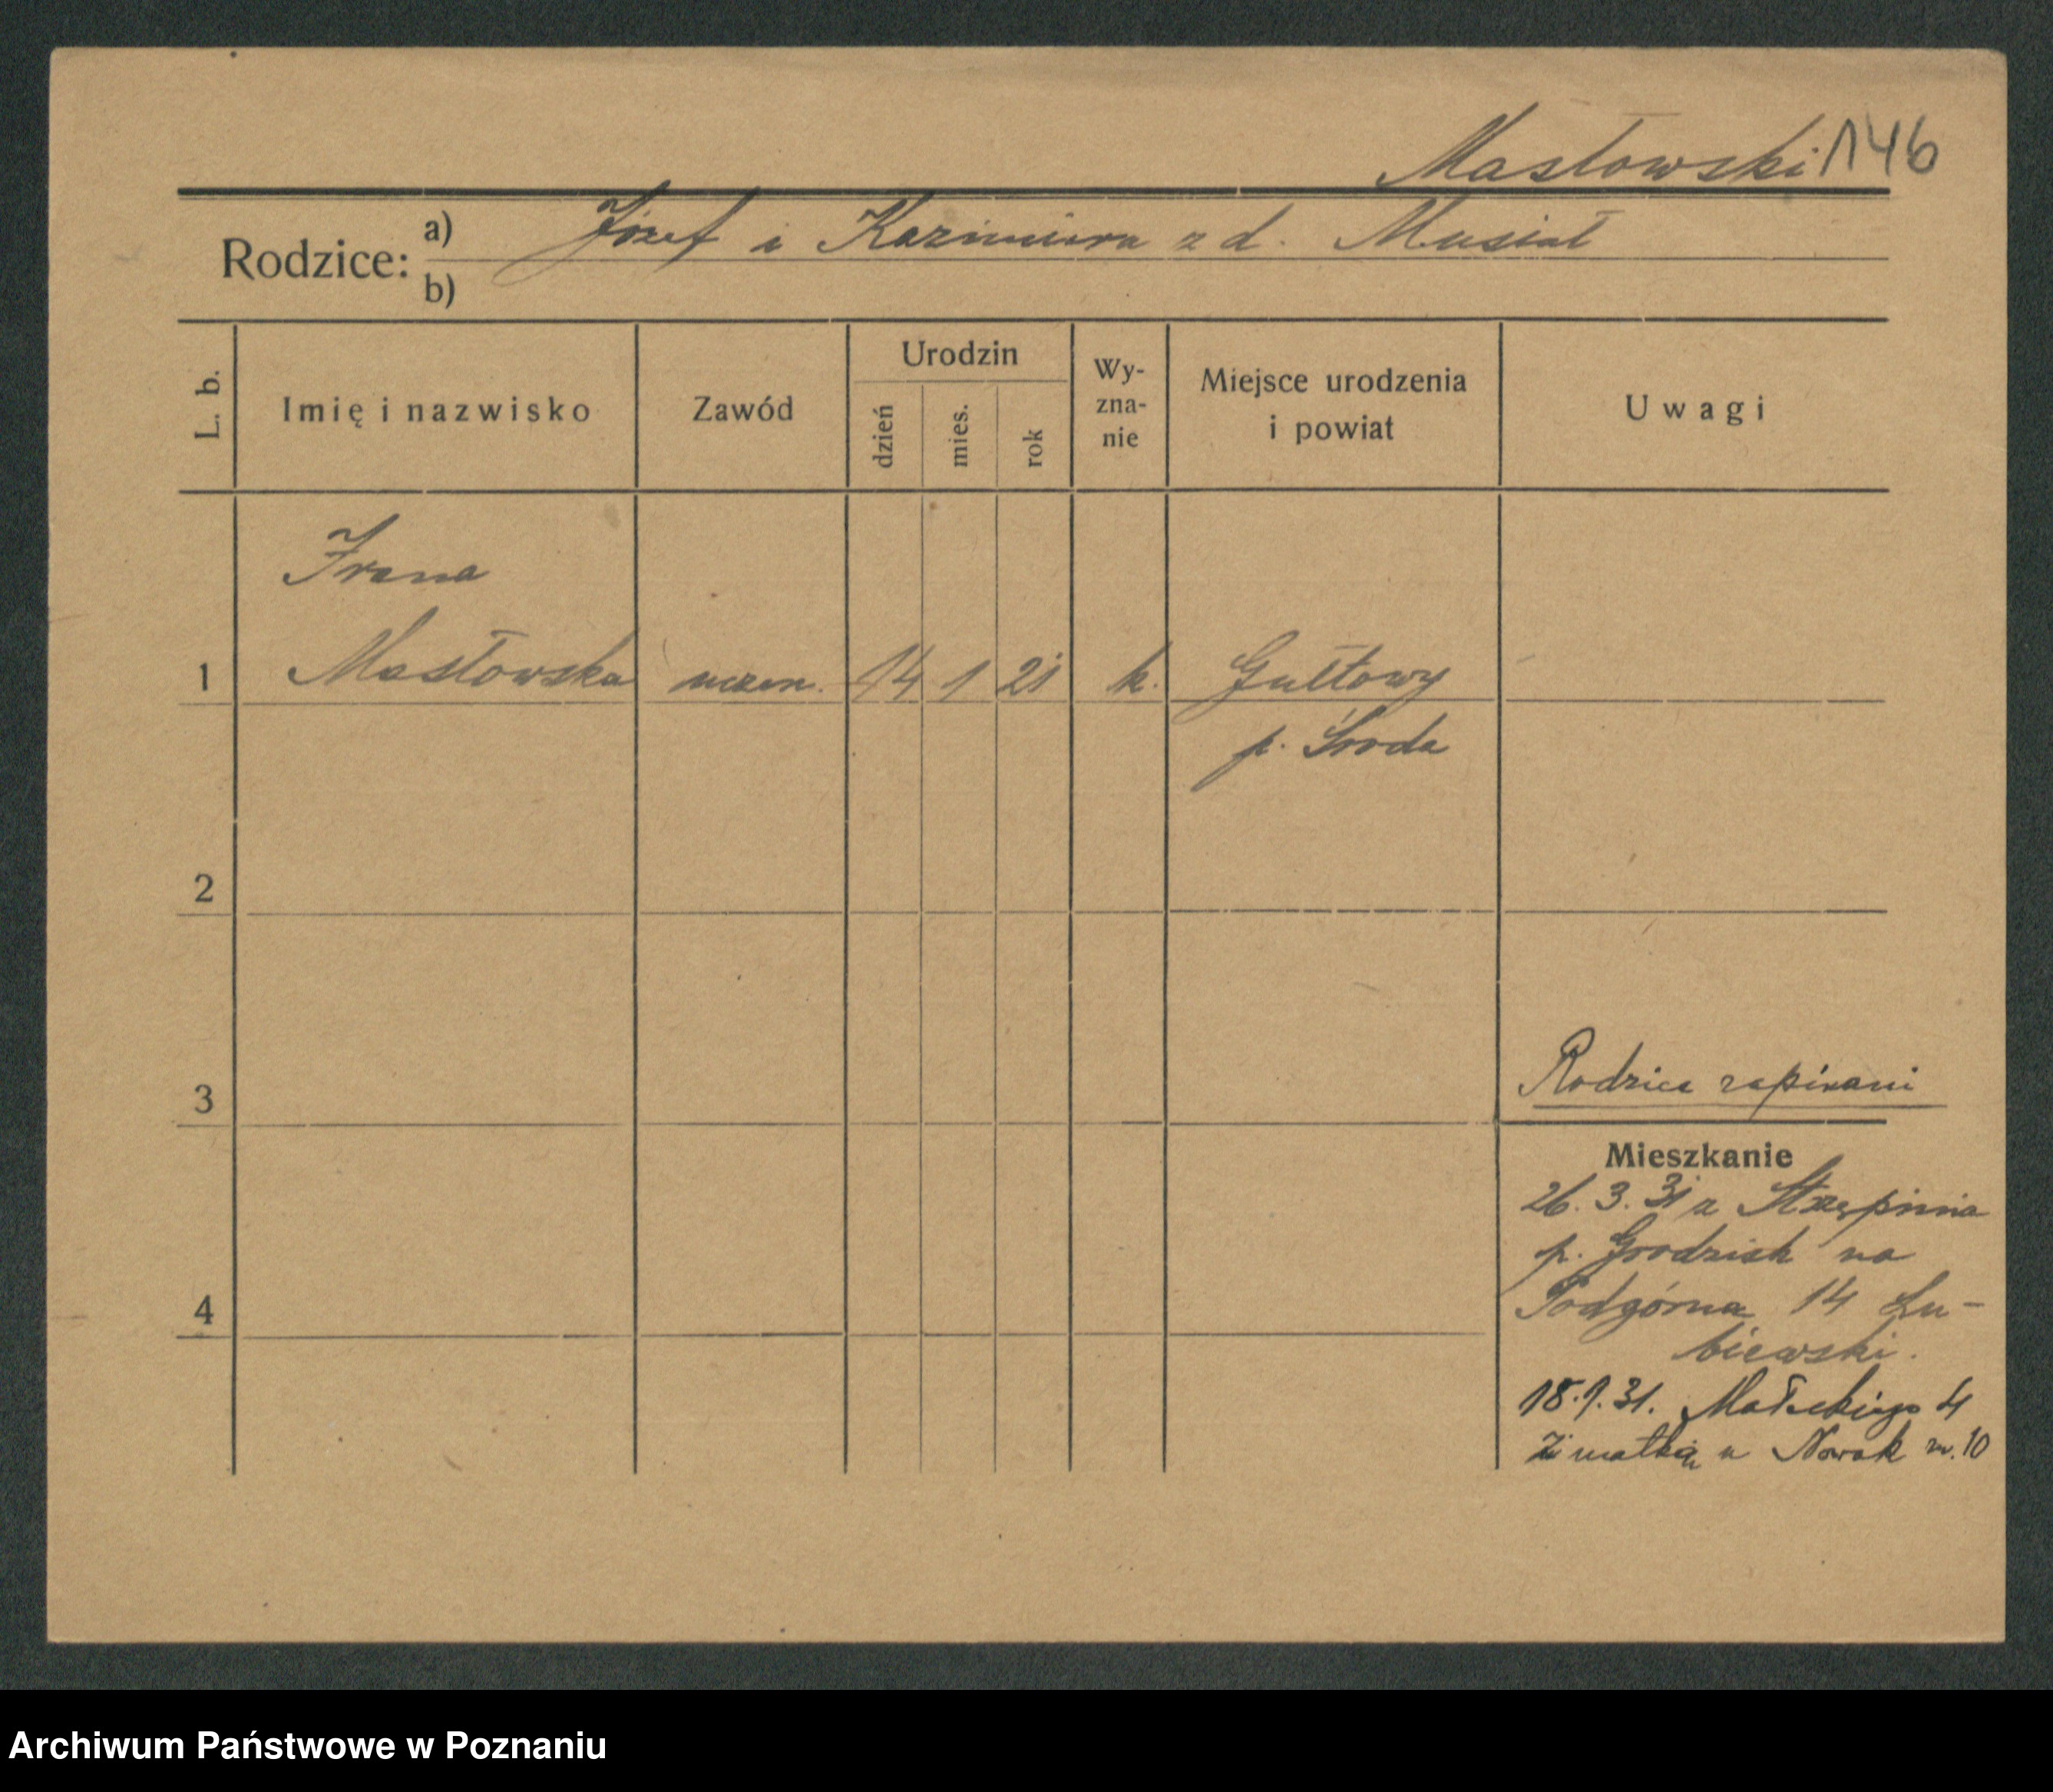 Masłowski 146
Rodzice: a) Józef i Kazimiera z d. Musiał
b)
L. b.
Imię i nazwisko
Zawód
Urodzin
dzień
mies.
rok
Wy-
zna-
nie
Miejsce urodzenia
i powiat
Uwagi
Irena
1 Masłowska uczen. 14 1 21 k. Gułtowy
p. Środa
2
3
Rodzice zapisani
Mieszkanie
26. 3. 31 z Strzępinia
p. Grodzisk na
4
Podgórna 14 Lu-
biewski.
18.9.31. Małeckiego 4
z matką u Nowak m. 10
Archiwum Państwowe w Poznaniu